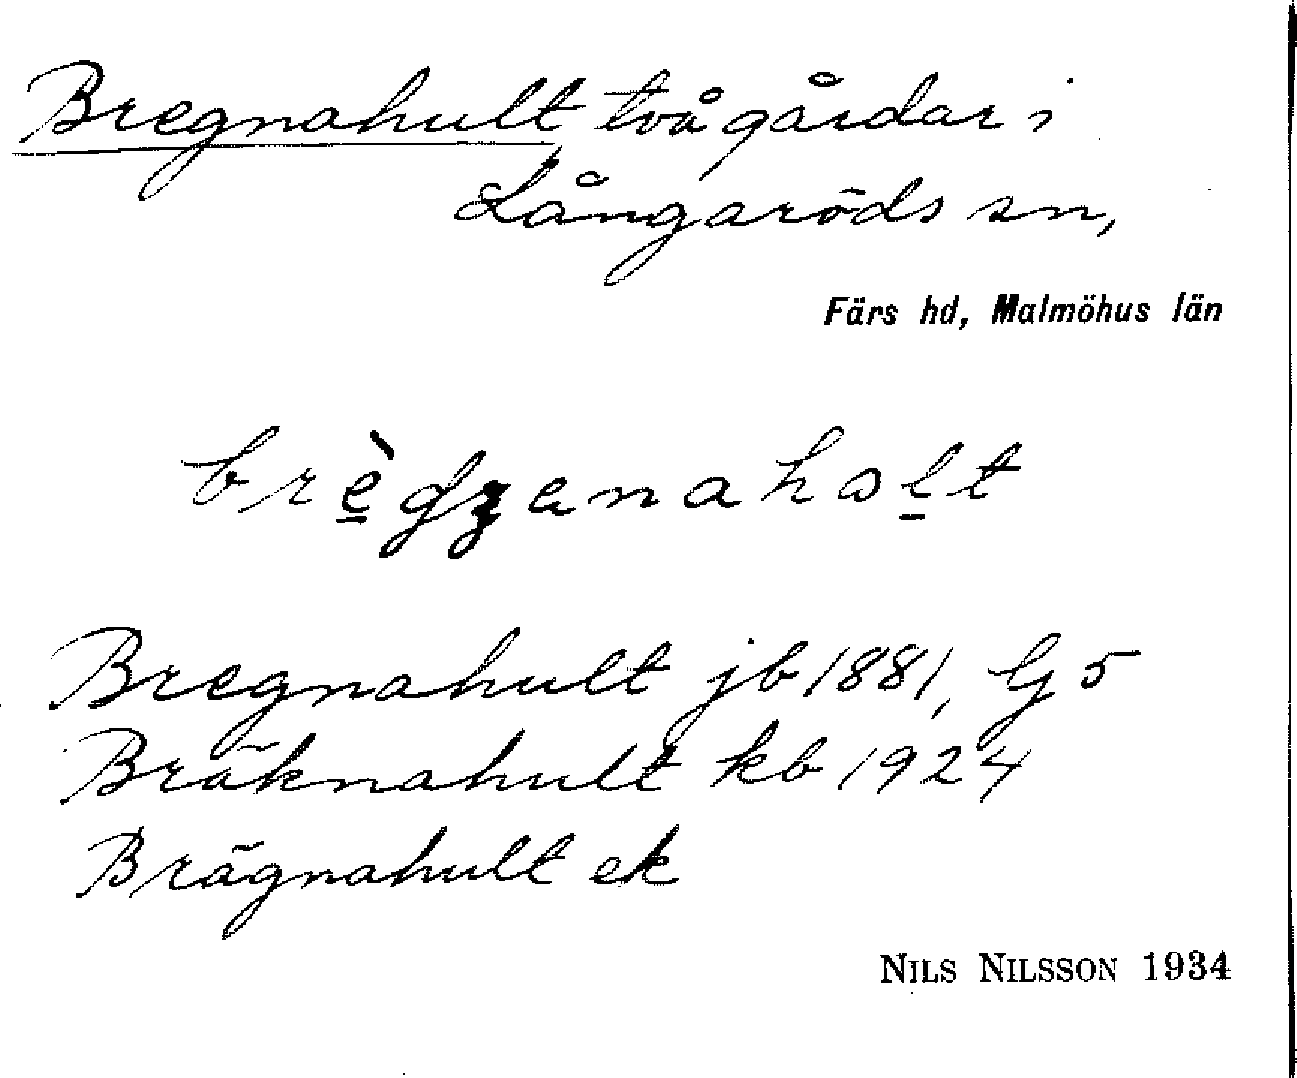 Bregnahult två gårdar i
Långaröds sn,
Färs hd, Malmöhus län
Bregnahult jb 1881, G 5
Bräknahult kb 1924
Brägnahult ek
NILS NILSSON 1934